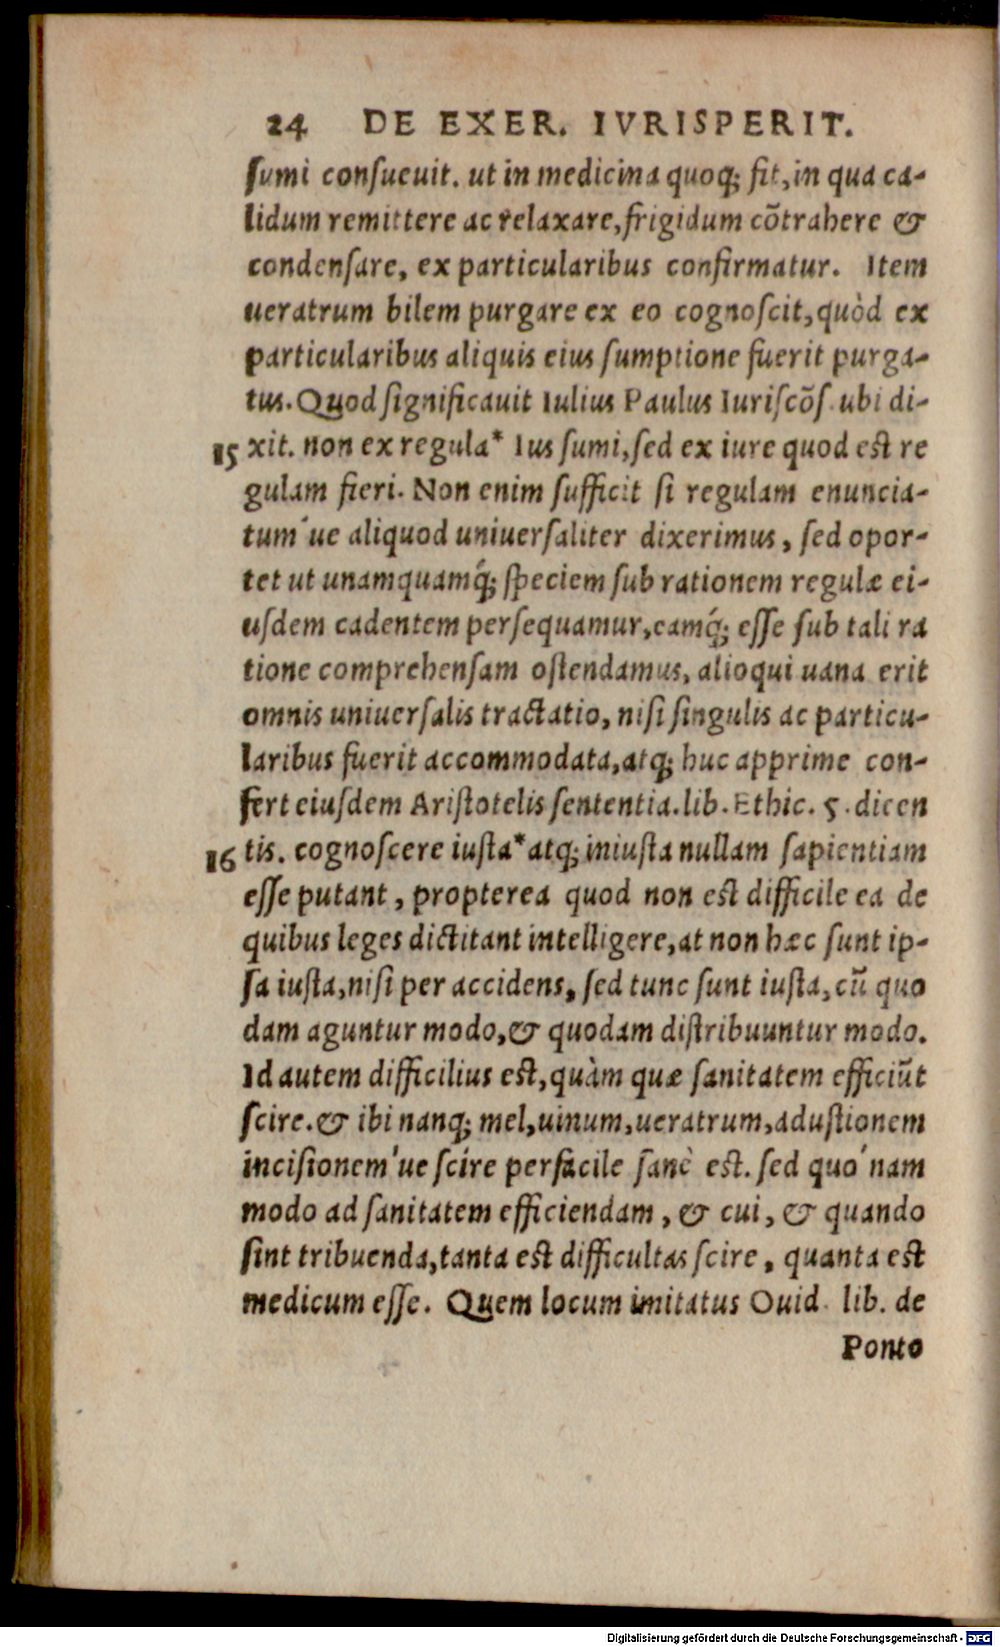 24 DE EXER. IVRISPERIT.
ſumi conſueuit. ut in medicina quoq; fit, in qua ca-
lidum remittere ac relaxare, frigidum cõtrahere &
condenſare, ex particularibus confirmatur. Item
ueratrum bilem purgare ex eo cognoſcit, quòd ex
particularibus aliquis eius ſumptione fuerit purga-
tus. Quod ſignificauit Iulius Paulus Iuriſcõſ. ubi di-
15 xit. non ex regula* Ius ſumi, ſed ex iure quod est re
gulam fieri. Non enim ſufficit ſi regulam enuncia-
tum´ue aliquod uniuerſaliter dixerimus, ſed opor-
tet ut unamquamq́; ſpeciem ſub rationem regulæ ei-
uſdem cadentem perſequamur, eamq́; eſſe ſub tali ra
tione comprehenſam oſtendamus, alioqui uana erit
omnis uniuerſalis tractatio, niſi ſingulis ac particu-
laribus fuerit accommodata, atq; huc apprime con-
fert eiuſdem Ariſtotelis ſententia. lib. Ethic. 5. dicen
16 tis. cognoſcere iuſta* atq; iniuſta nullam ſapientiam
eſſe putant, propterea quod non est difficile ea de
quibus leges dictitant intelligere, at non hæc ſunt ip-
ſa iuſta, niſi per accidens, ſed tunc ſunt iuſta, cũ quo
dam aguntur modo, & quodam diſtribuuntur modo.
Id autem difficilius est, quàm quæ ſanitatem efficiũt
ſcire. & ibi nanq; mel, uinum, ueratrum, aduſtionem
inciſionem´ue ſcire perfacile ſanè est. ſed quo´nam
modo ad ſanitatem efficiendam, & cui, & quando
ſint tribuenda, tanta est difficultas ſcire, quanta est
medicum eſſe. Quem locum imitatus Ouid. lib. de
Ponto
Digitalisierung gefördert durch die Deutsche Forschungsgemeinschaft - DFG